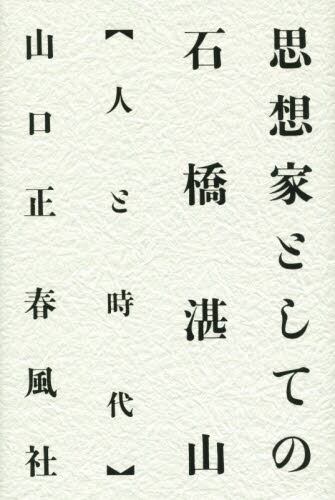 思想家としての
石橋湛山
【人と時代】
山口正
春風社